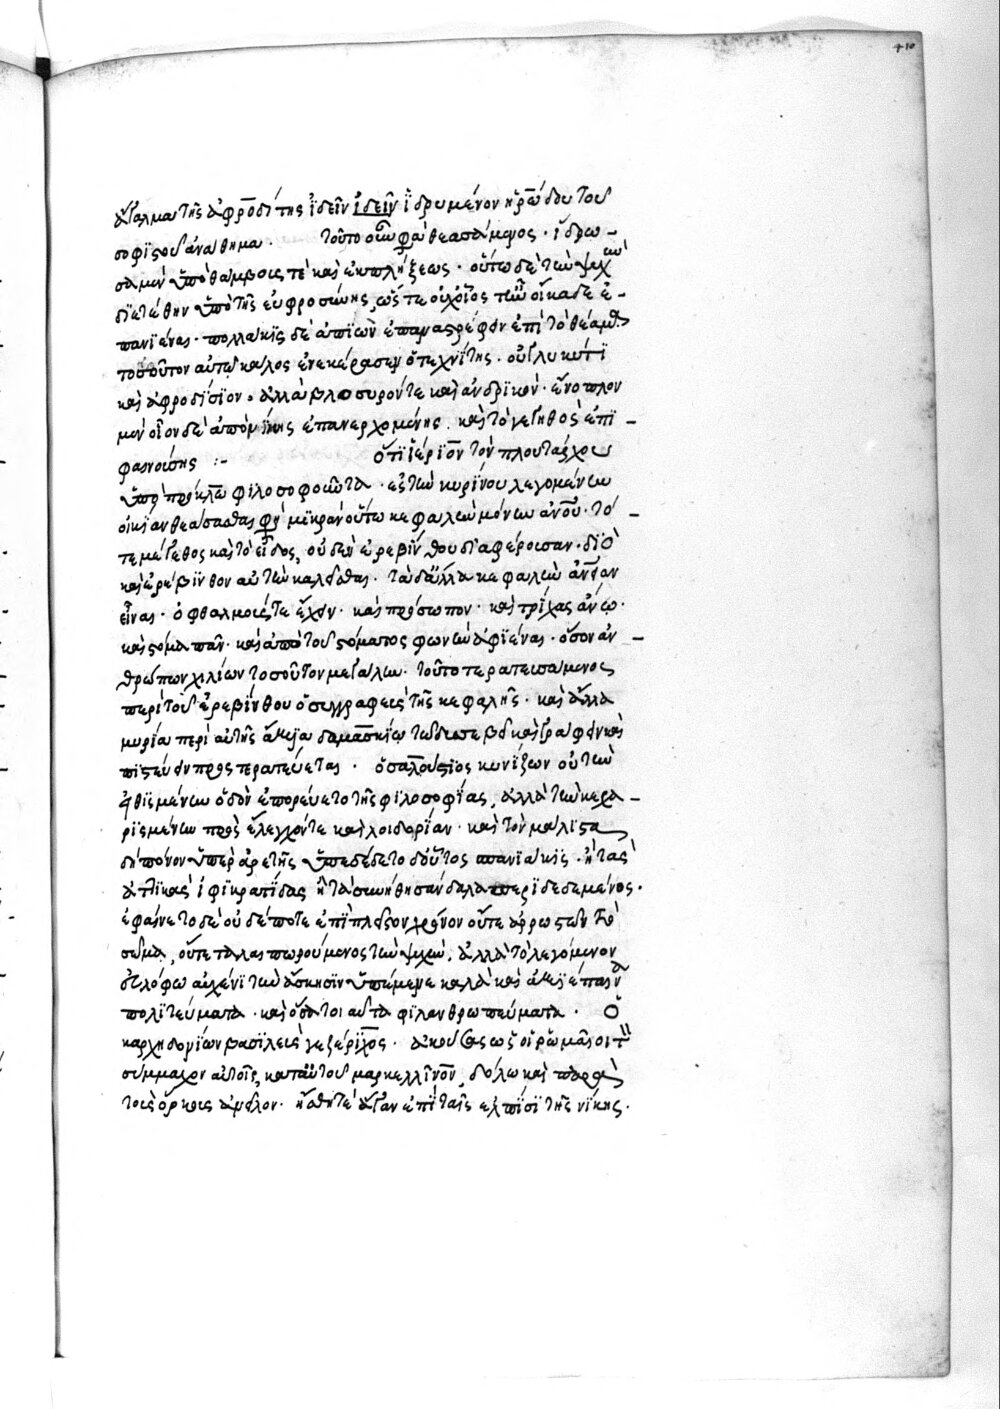 ἄγαλμα τῆς ἀφροδίτης ἰδεῖν ἰδεῖν ἱδρυμένον ἡρώδου τοῦ
σοφιστοῦ ἀνάθημα. τοῦτο οὖν φη θεασάμενος. ἵδρω–
σα μὲν ὑπὸ θάμβους τὲ καὶ ἐκπλήξεως. οὕτω δὲ τὴν ψυχὴν
διετέθην ὑπὸ τῆς εὐφροσύνης, ὥστε οὐχ οἷός τ' ἦν οἴκαδε ἐ–
πανϊέναι. πολλάκις δὲ ἀπϊὼν ἐπαναστρέφειν ἐπὶ τὸ θέαμα
τοσοῦτον αὐτῶ κάλλος ἐνεκέρασεν ὁ τεχνίτης. οὐ γλυκύ τι
καὶ ἀφροδίσϊον. ἀλλὰ βλοσυρόν τε καὶ ἀνδρικόν. ἔνοπλον
μὲν οἷον δὲ ἀπὸ νίκης ἐπανερχομένης. καὶ τὸ γεγηθὸς ἐπι–
φαινούσης :– ὅτι ἱέριον τὸν πλουτάρχου
ὑπὸ πρόκλω φιλοσοφοῦντα. ἐξ τῶν κυρίνου λεγομένων
οἰκίαν θεάσασθαι φη μικρὰν οὕτω κεφαλὴν μόνην ἀνου. τό
τε μέγεθος καὶ τὸ εἶδος, οὐδὲν ἐρεβίνθου διαφέρουσαν. διὸ
καὶ ἐρέβινθον αὐτὴν καλεῖσθαι. τὰ δ' ἄλλα κεφαλὴν ἀνίαν
εἶναι. ὀφθαλμούς τε ἔχειν. καὶ πρόσωπον. καὶ τρίχας ἄνω.
καὶ στόμα πᾶν. καὶ ἀπὸ τοῦ στόματος φωνὴν ἀφιέναι. ὅσον ἀν–
θρώπων χιλίων τοσοῦτον μεγάλην. τοῦτο τερατευσάμενος
περὶ τοῦ ἐρεβίνθου ὁ συγγραφεὺς τῆς κεφαλῆς. καὶ ἄλλα
μυρία περὶ αὐτῆς ἄξια δαμασκίω τῶ δυσσεβεῖ καὶ γράφειν καὶ
πιστεύειν προστερατεύεται. ὁ σαλούστιος κυνίζων οὐ τὴν
εἰθισμένην ὁδὸν ἐπορεύετο τῆς φιλοσοφίας, ἀλλὰ τὴν κεχα–
ρισμένην πρὸς ἔλεγχόν τε καὶ λοιδορίαν. καὶ τὸν μάλιστα
δὴ πόνον ὑπὲρ ἀρετῆς ὑπεδέδετο δ' οὗτος σπανιάκις. ἢ τὰς
ἀττικὰς ἰφικρατίδας ἢ τὰ συνήθη σανδάλα περιδεδεμένος.
ἐφαίνετο δὲ οὐδέποτε ἐπὶ πλεῖον χρόνον οὔτε ἀρρωστῶν τὸ
σῶμα, οὔτε ταλαιπωρούμενος τὴν ψυχήν. ἀλλὰ τὸ λεγόμενον
ἀλόφω αὐχένι τὴν ἄσκησιν ὑπέμενε καλὰ καὶ ἀξιέπαινα
πολϊτεύματα. καὶ ὅσα τοιαῦτα φιλανθρωπεύματα. ὁ
καρχηδονίων βασιλεὺς γεζέριχος. ἀκούσας ὡς οἱ ῥωμαῖοι τὸν
σύμμαχον αὐτοῖς, κατὰ τοῦ μαρκελλῖνον, δόλω καὶ παρὰ
τοὺς ὅρκους ἀνεῖλον. ἥσθη τὲ ἄγαν ἐπὶ ταῖς ἐλπίσϊ τῆς νίκης.